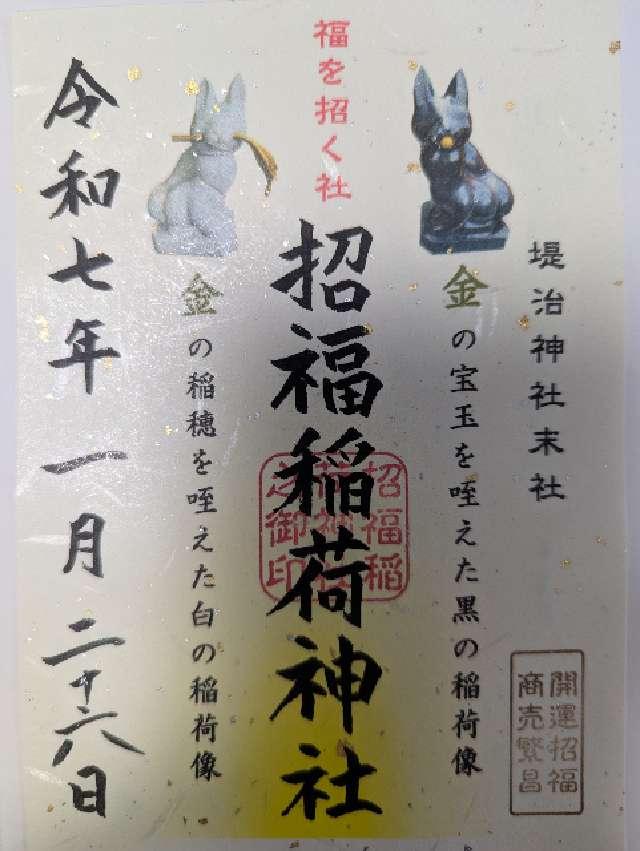 堤治神社末社
開運招福
商売繁昌
金の宝玉を咥えた黒の稲荷像
福を招く社
招福稲荷神社
招福稲
荷神社
之御印
金の稲穂を咥えた白の稲荷像
令和七年一月二十六日